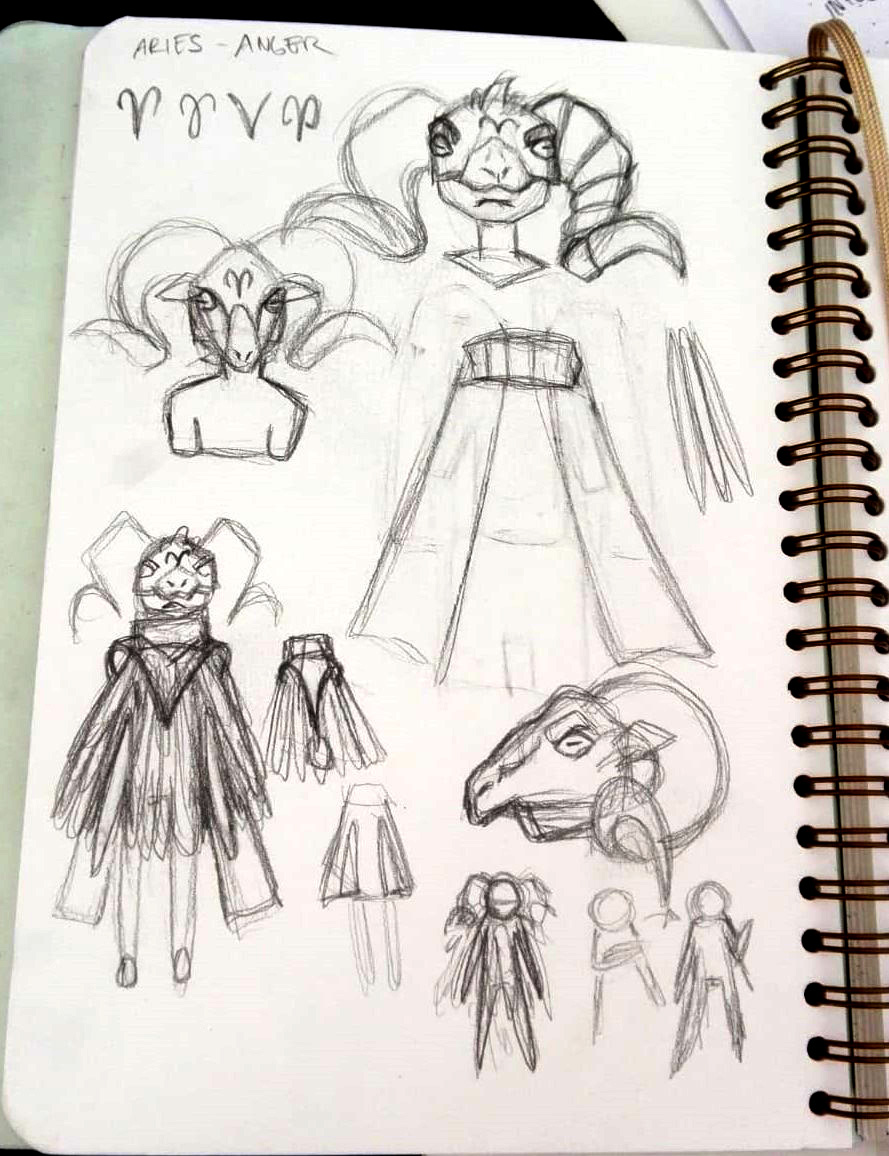 ARIES - ANGER